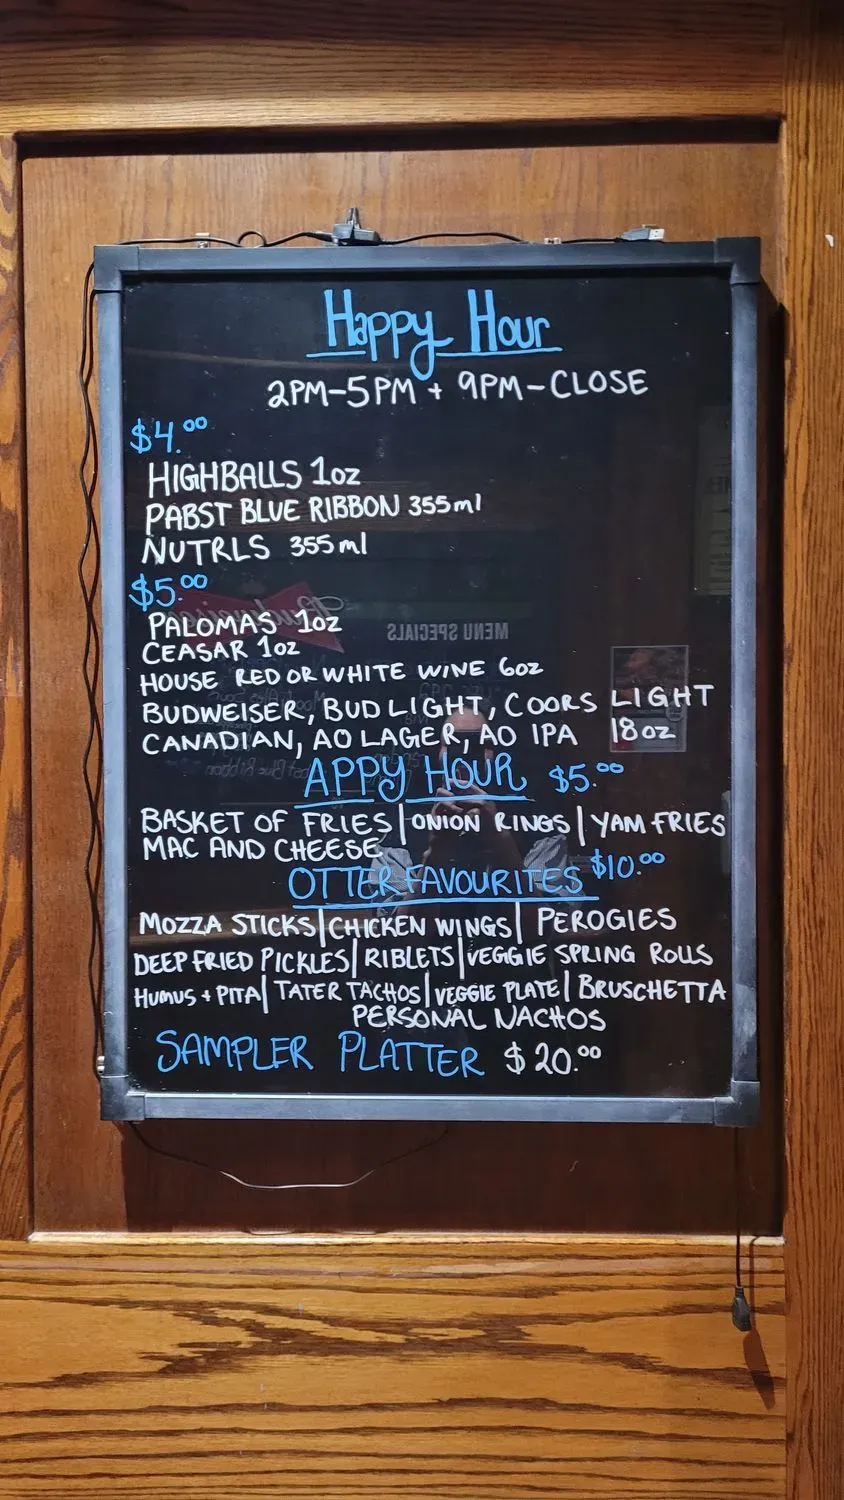 Happy Hour
2PM-5PM + 9PM-CLOSE
$4.00
HIGHBALLS 1oz
PABST BLUE RIBBON 355ml
NUTRLS 355ml
$5.00
Budweiser
MENU SPECIALS
PALOMAS 1oz
CEASAR 1oz
HOUSE RED OR WHITE WINE 6oz
BUDWEISER, BUD LIGHT, COORS LIGHT
CANADIAN, AO LAGER, AO IPA 18oz
APPY HOUR $5.00
BASKET OF FRIES | ONION RINGS | YAM FRIES
MAC AND CHEESE
OTTER FAVOURITES $10.00
MOZZA STICKS | CHICKEN WINGS | PEROGIES
DEEP FRIED PICKLES | RIBLETS | VEGGIE SPRING ROLLS
HUMUS + PITA | TATER TACHOS | VEGGIE PLATE | BRUSCHETTA
PERSONAL NACHOS
SAMPLER PLATTER $20.00